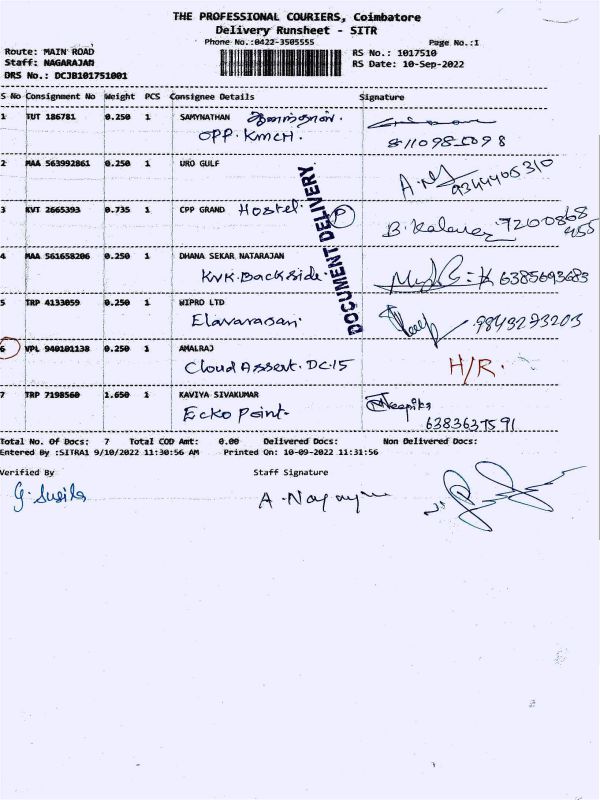 THE PROFESSIONAL COURIERS, Coimbatore
Delivery Runsheet - SITR
Phone No.:0422-3505555 Page No.:1
Route: MAIN ROAD RS No.: 1017510
Staff: NAGARAJAN RS Date: 10-Sep-2022
DRS No.: DCJB101751001
S No Consignment No Weight PCS Consignee Details Signature
1 TUT 186781 0.250 1 SAMYNATHAN
OPP. KMCH.
2 MAA 563992861 0.250 1 URO GULF
9344405310
3 KVT 2665393 0.735 1 CPP GRAND Hostel. P
7200868
455
4 MAA 561658206 0.250 1 DHANA SEKAR NATARAJAN
KVK. Backside. 6385693683
5 TRP 4133059 0.250 1 WIPRO LTD
Elavarasan. 9843273203
6 VPL 940101138 0.250 1 AMALRAJ
Cloud Assert. DC15 H/R.
7 TRP 7198560 1.650 1 KAVIYA SIVAKUMAR
Ecko Point- 6383637591
DOCUMENT DELIVERY
Total No. Of Docs: 7 Total COD Amt: 0.00 Delivered Docs: Non Delivered Docs:
Entered By :SITRA1 9/10/2022 11:30:56 AM Printed On: 10-09-2022 11:31:56
Verified By Staff Signature
G. Susila